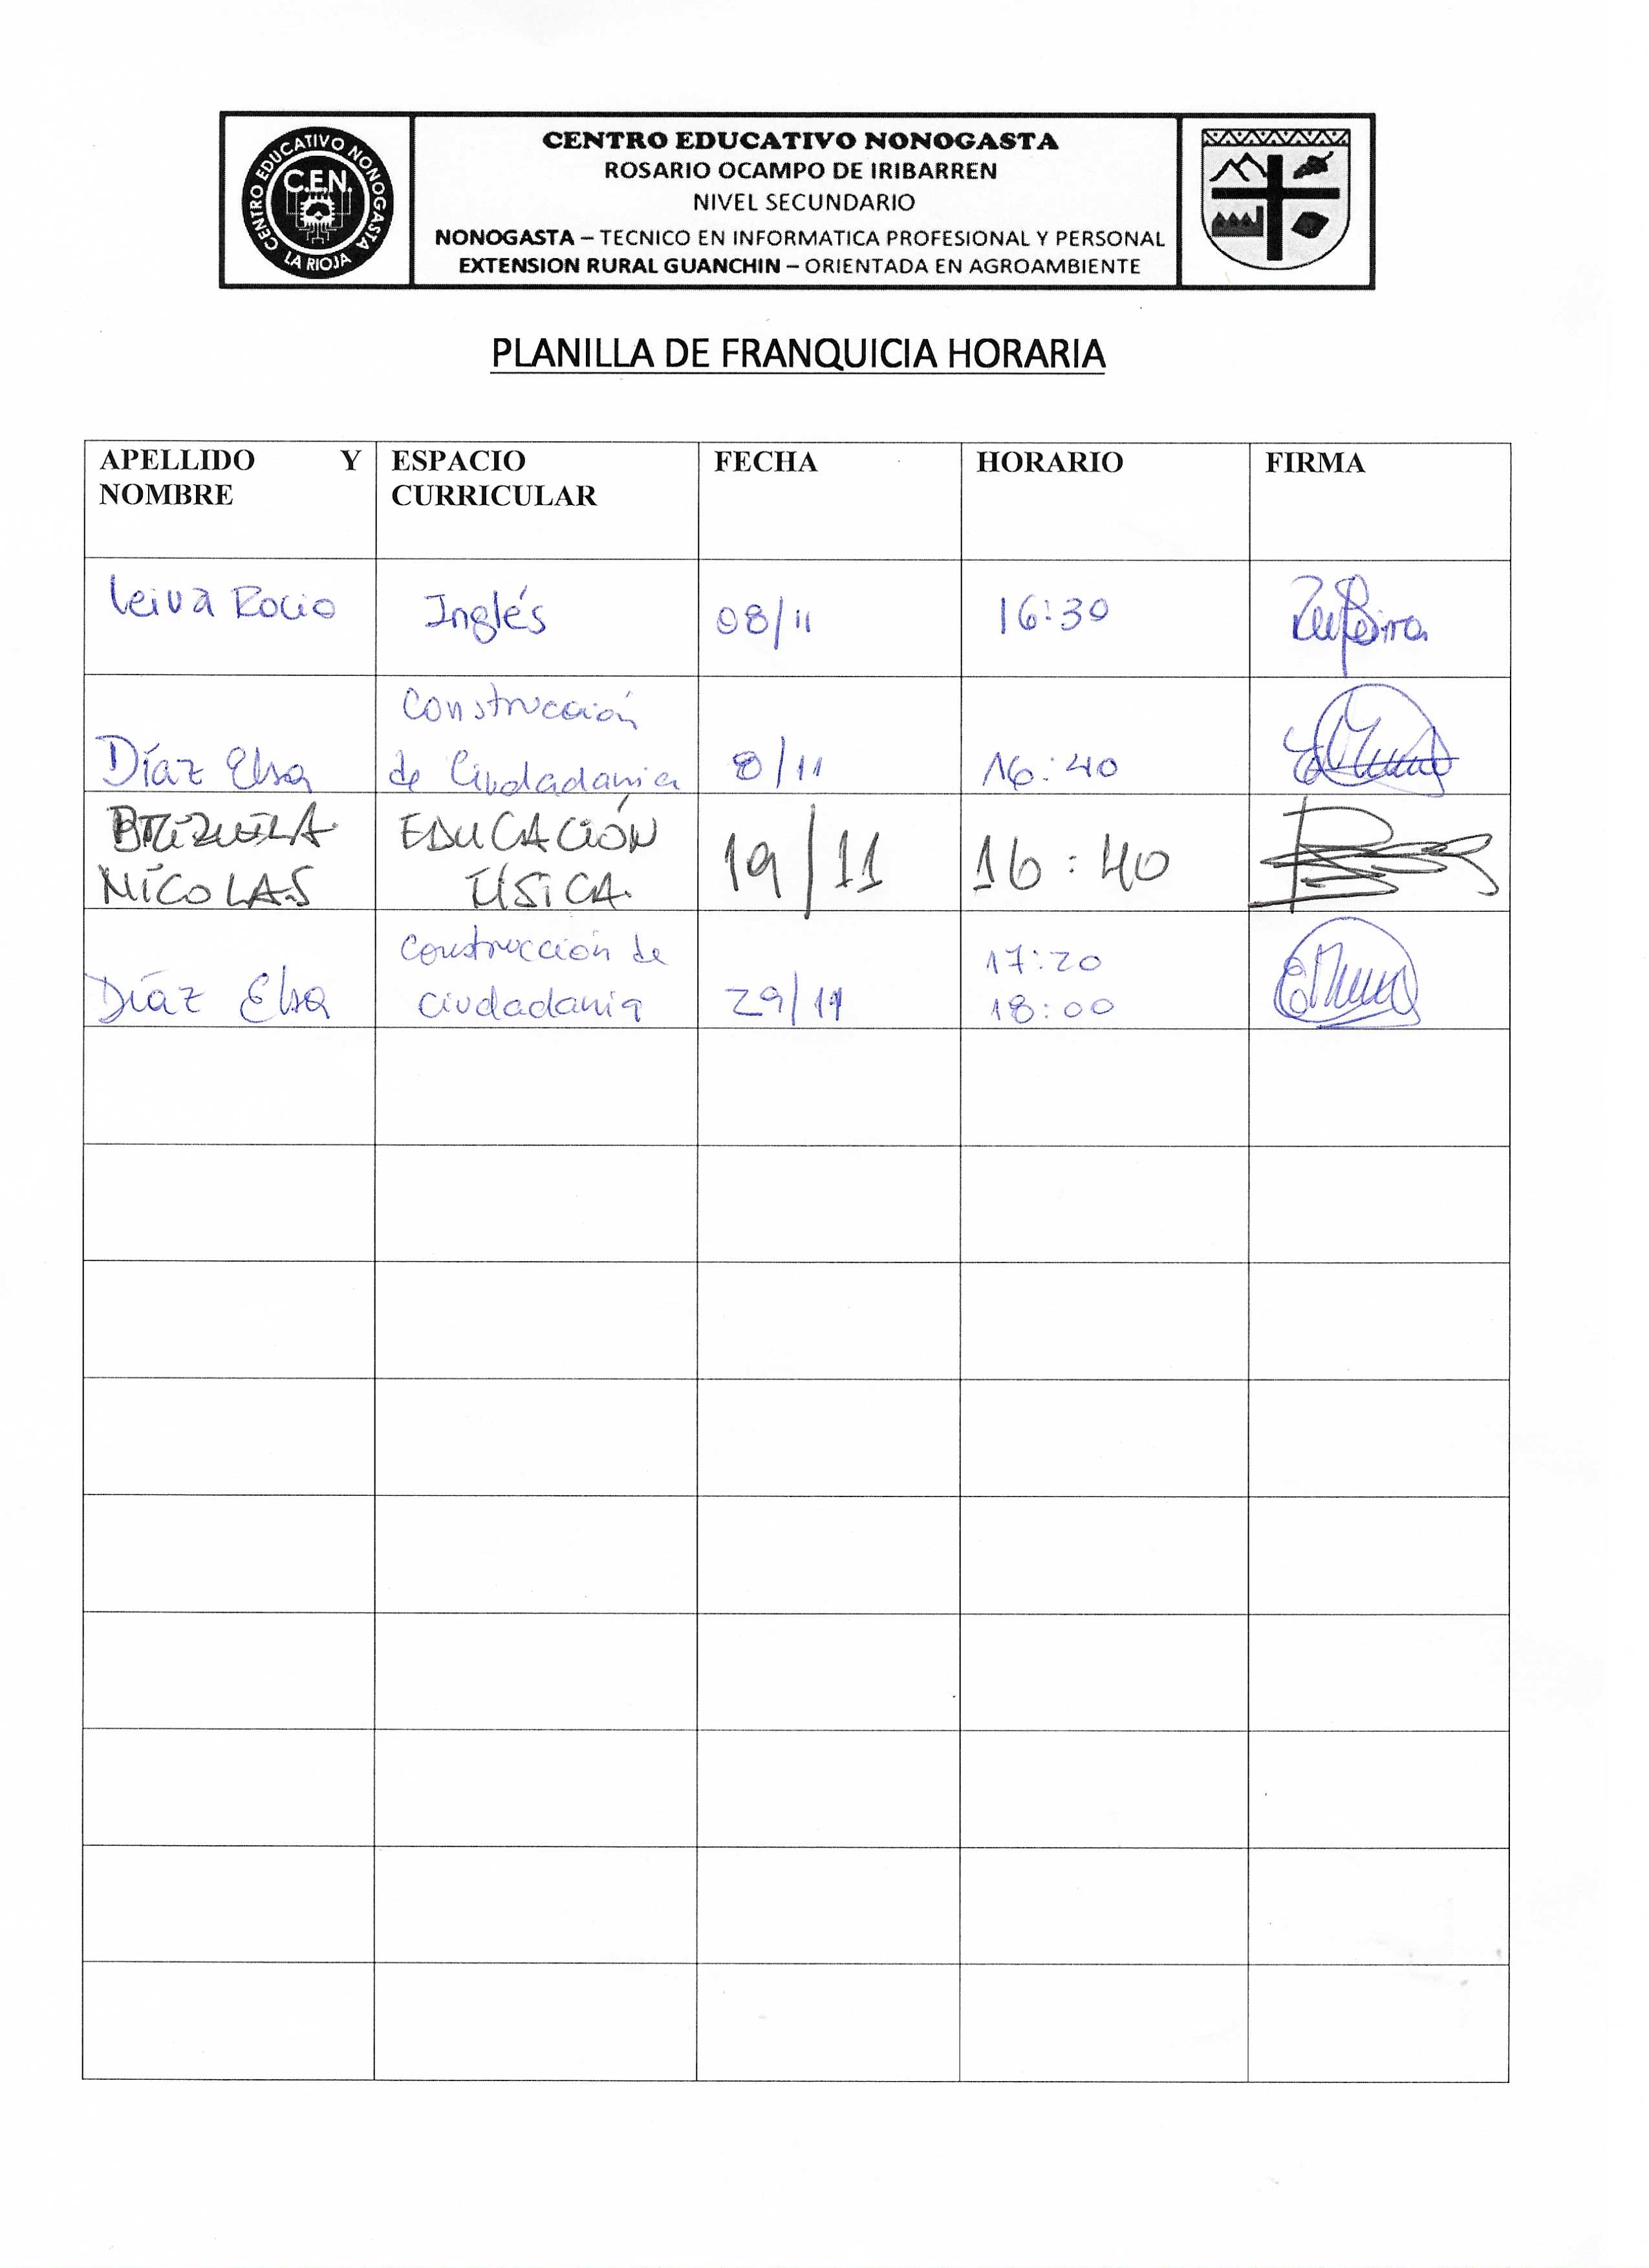 CENTRO EDUCATIVO NONOGASTA
C.E.N.
LA RIOJA
CENTRO EDUCATIVO NONOGASTA
ROSARIO OCAMPO DE IRIBARREN
NIVEL SECUNDARIO
NONOGASTA – TECNICO EN INFORMATICA PROFESIONAL Y PERSONAL
EXTENSION RURAL GUANCHIN – ORIENTADA EN AGROAMBIENTE
PLANILLA DE FRANQUICIA HORARIA
APELLIDO Y
NOMBRE
ESPACIO
CURRICULAR
FECHA
HORARIO
FIRMA
Leiva Rocio
Inglés
08/11
16:30
Díaz Elsa
Construcción
de Ciudadania
8/11
16:40
BRIZUELA
NICOLAS
EDUCACIÓN
FÍSICA.
19/11
16:40
Díaz Elsa
Construcción de
ciudadania
29/11
17:20
18:00